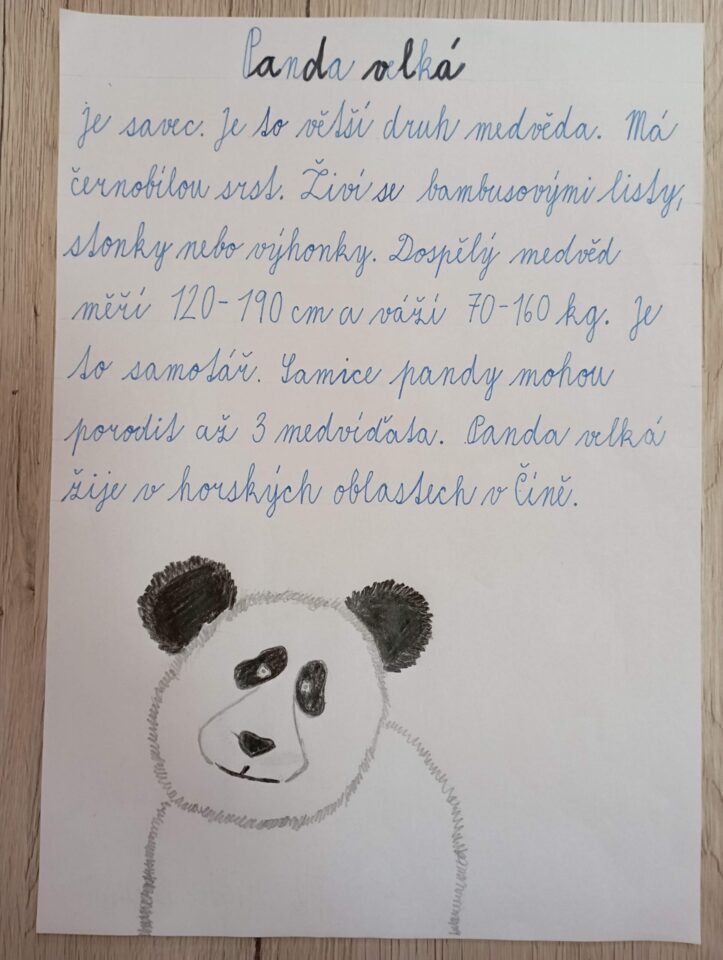 Panda velká
je savec. Je to větší druh medvěda. Má
černobílou srst. Živí se bambusovými listy,
stonky nebo výhonky. Dospělý medvěd
měří 120-190 cm a váží 70-160 kg. Je
to samotář. Samice pandy mohou
porodit až 3 medvíďata. Panda velká
žije v horských oblastech v Číně.